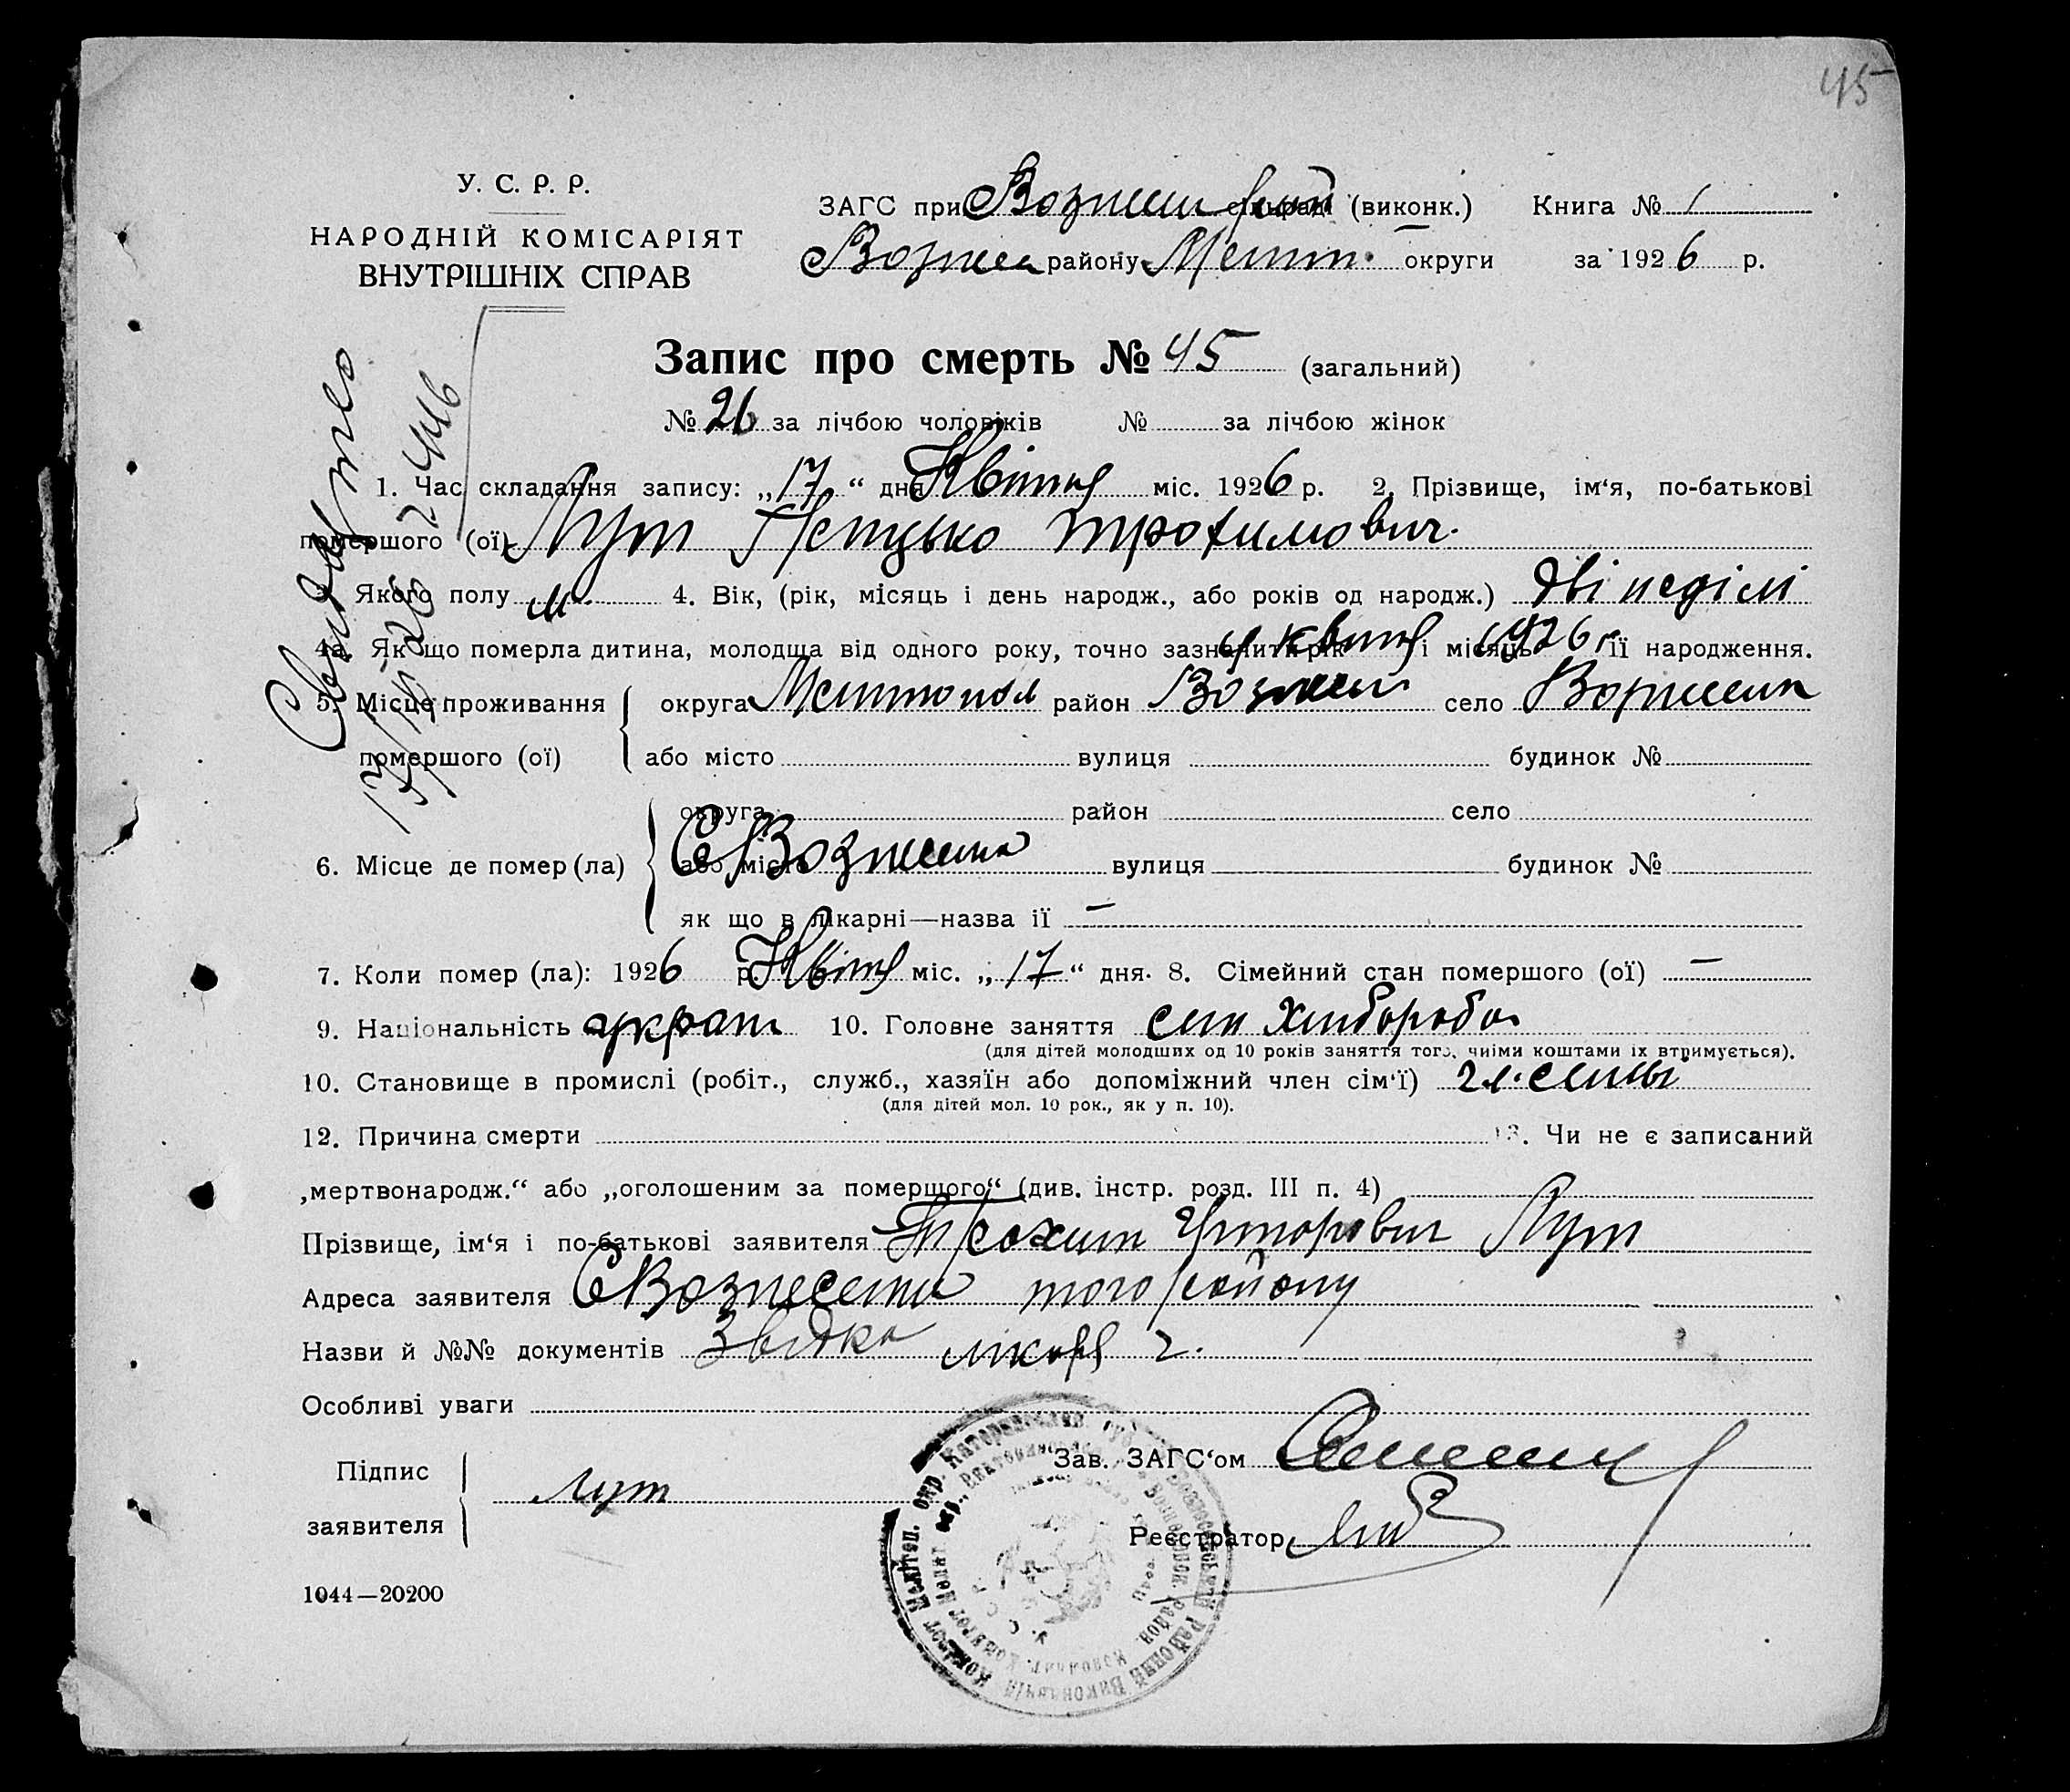 45
У. С. Р. Р.
НАРОДНІЙ КОМІСАРІЯТ
ВНУТРІШНІХ СПРАВ
ЗАГС при (виконк.) Книга № 1
району Меліт. округи за 1926 р.
Запис про смерть № 45 (загальний)
№ 26 за лічбою чоловіків № за лічбою жінок
1. Час складання запису: „17“ дня Квітня міс. 1926 р. 2. Прізвище, ім‘я, по-батькові
помершого (ої) Лут Петько Трохимович.
Якого полу м 4. Вік, (рік, місяць і день народж., або років од народж.) дві неділі
4а. Як що померла дитина, молодша від одного року, точно зазначити рік і місяць її народження. 4 квітня 1926 р
5. Місце проживання округа Мелітопол район село
помершого (ої) або місто вулиця будинок №
округа район село
6. Місце де помер (ла) або місто вулиця будинок №
як що в лікарні—назва ії —
7. Коли помер (ла): 1926 р. Квітня міс. „17“ дня. 8. Сімейний стан помершого (ої) —
9. Національність україн 10. Головне заняття син хлібороба
(для дітей молодших од 10 років заняття того, чиїми коштами їх втримується).
10. Становище в промислі (робіт., служб., хазяїн або допоміжний член сім‘ї)
(для дітей мол. 10 рок., як у п. 10).
12. Причина смерти 13. Чи не є записаний
„мертвонародж.“ або „оголошеним за померщого“ (див. інстр. розд. III п. 4)
Прізвище, ім‘я і по-батькові заявителя Трохим Лут
Адреса заявителя С Вознесенка того району
Назви й №№ документів Звідка лікаря
Особливі уваги
Підпис
заявителя Лут
Зав. ЗАГС‘ом
Реєстратор
1044—20200